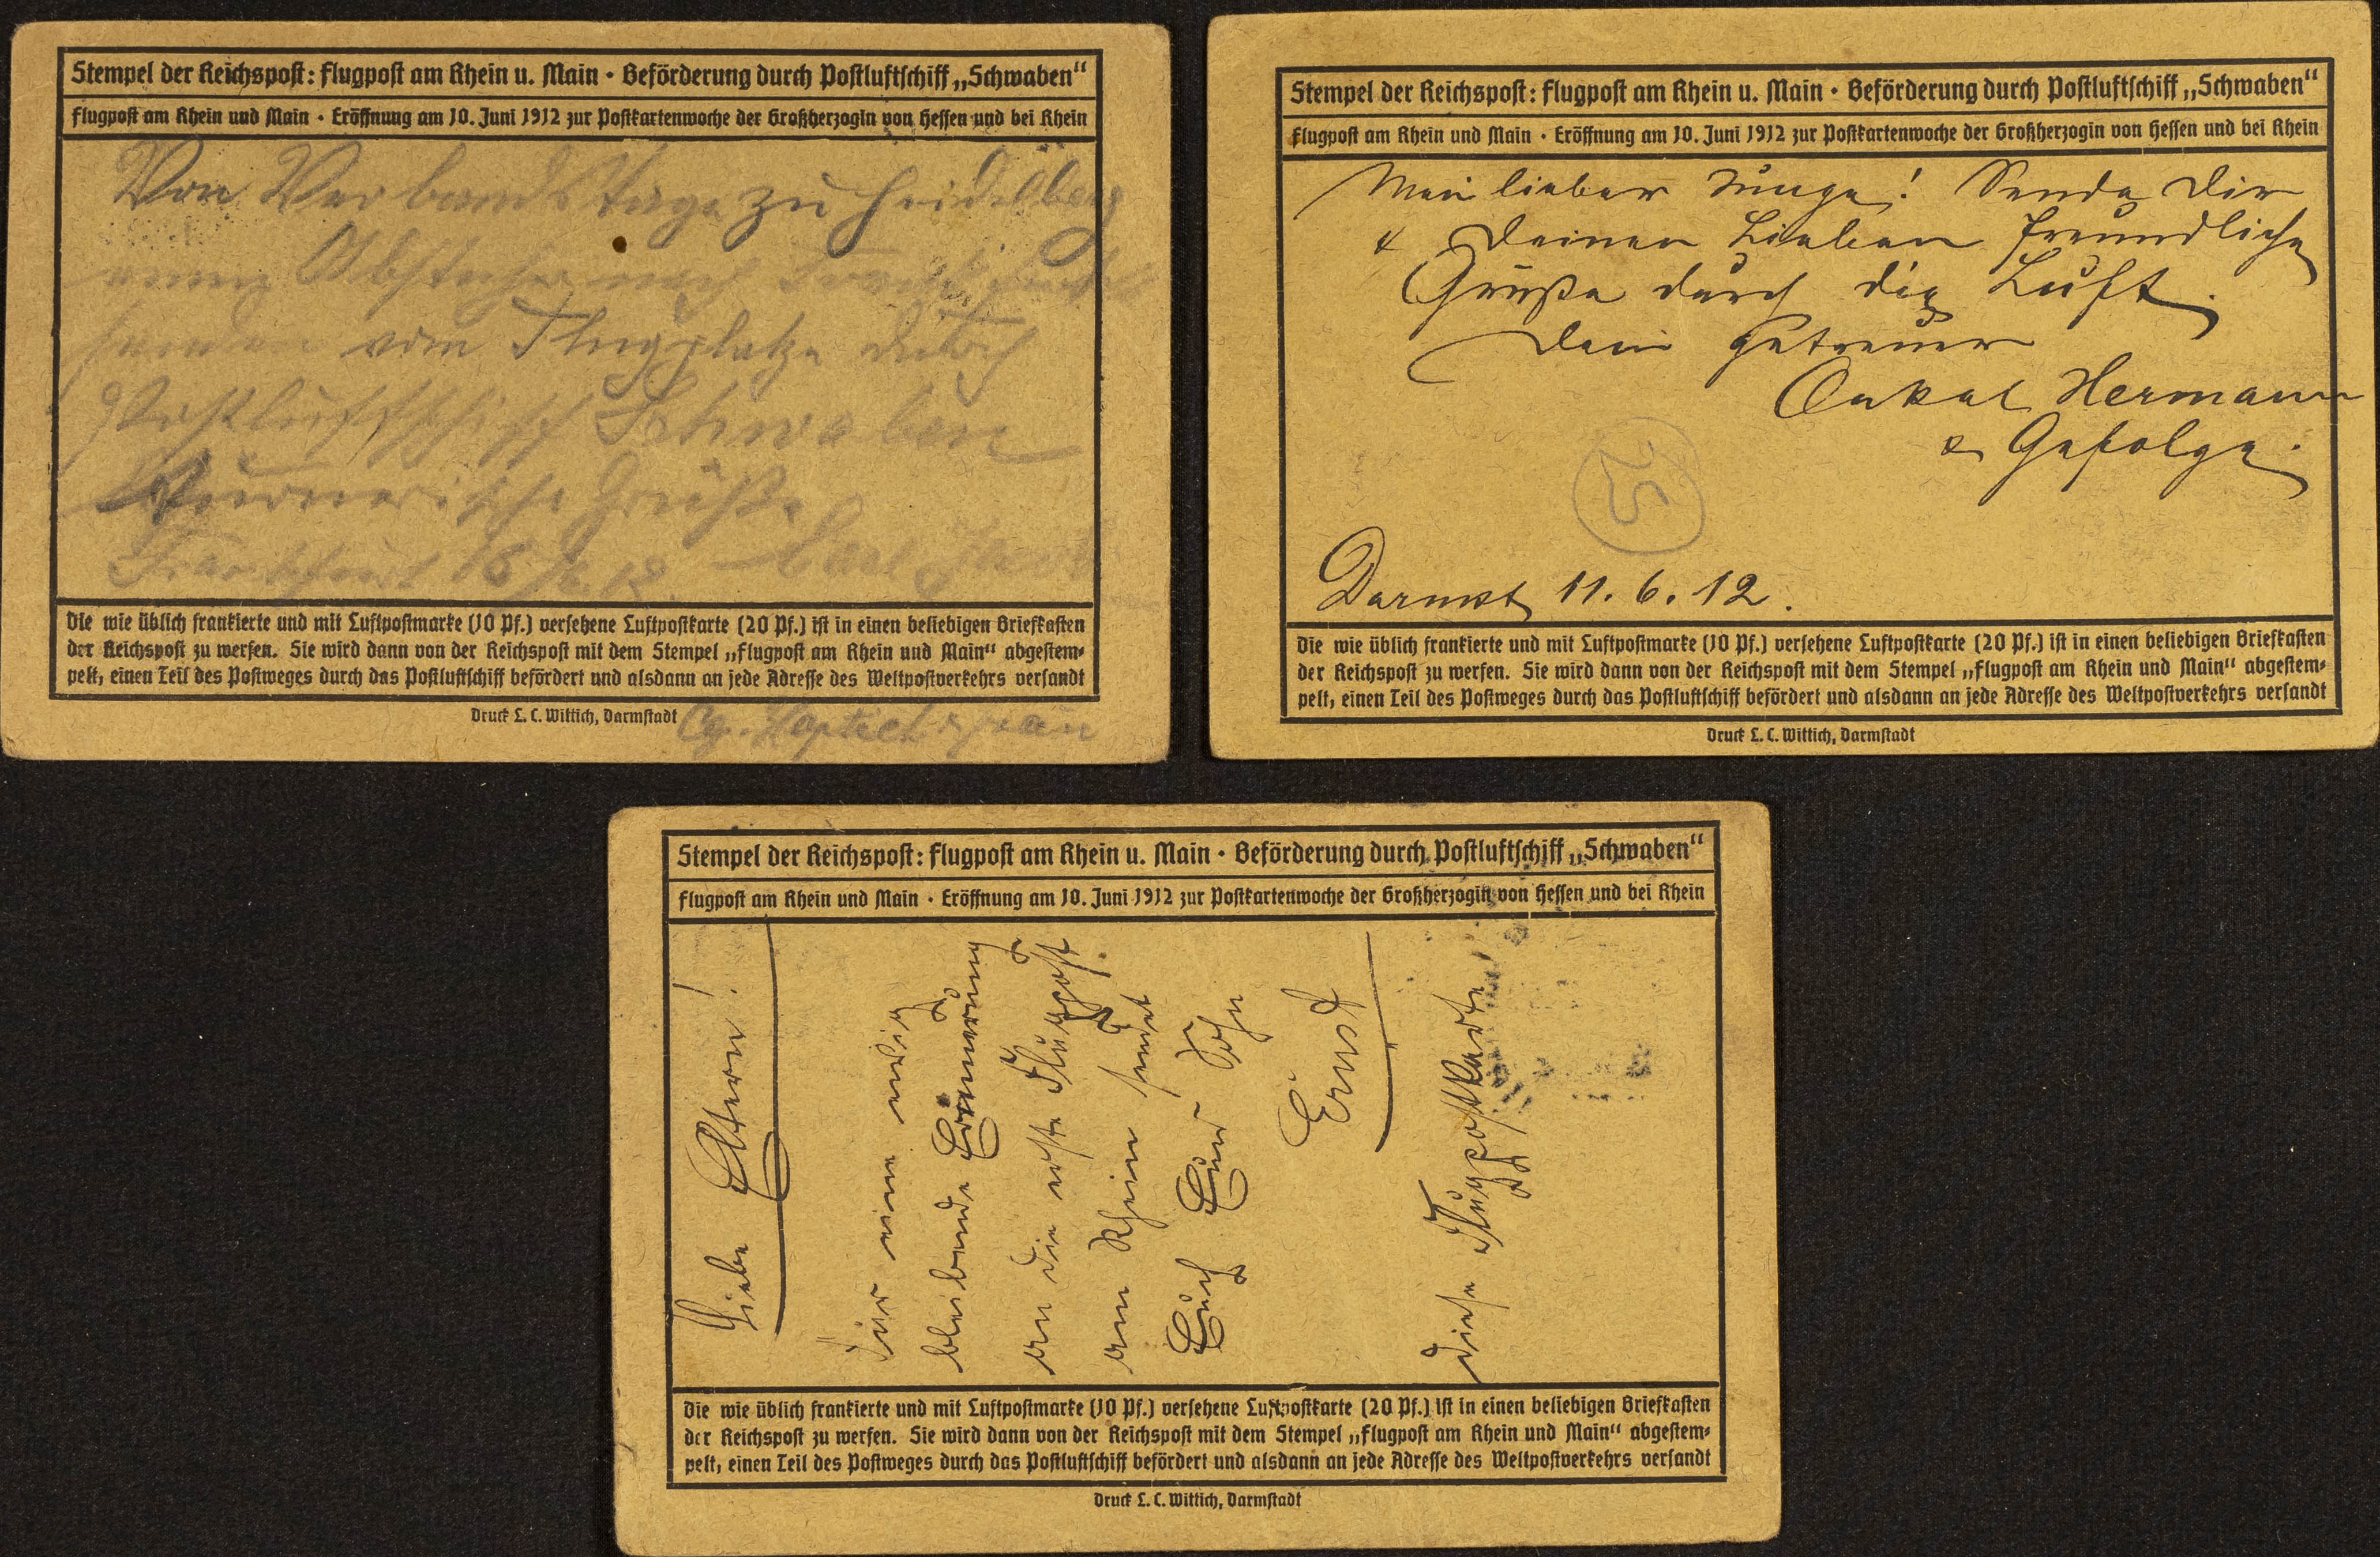 Stempel der Reichspost: Flugpost am Rhein u. Main • Beförderung durch Postluftschiff „Schwaben“
Flugpost am Rhein und Main • Eröffnung am 10. Juni 1912 zur Postkartenwoche der Großherzogin von Hessen und bei Rhein
Von Verbandstage zu Heidelberg
einen Abstecher nach
vom Flugplatze durch
Postluftschiff Schwaben
Turnerische Grüße
Frankfurt Carl
Die wie üblich frankierte und mit Luftpostmarke (10 Pf.) versehene Luftpostkarte (20 Pf.) ist in einen beliebigen Briefkasten
der Reichspost zu werfen. Sie wird dann von der Reichspost mit dem Stempel „Flugpost am Rhein und Main“ abgestem-
pelt, einen Teil des Postweges durch das Postluftschiff befördert und alsdann an jede Adresse des Weltpostverkehrs versandt
Druck L. C. Wittich, Darmstadt
Stempel der Reichspost: Flugpost am Rhein u. Main • Beförderung durch Postluftschiff „Schwaben“
Flugpost am Rhein und Main • Eröffnung am 10. Juni 1912 zur Postkartenwoche der Großherzogin von Hessen und bei Rhein
Mein lieber Junge! Sende Dir
& Deinen Lieben freundliche
Grüße durch die Luft.
Dein getreuer
Onkel Hermann
& Gefolge.
25
Darmst 11. 6. 12.
Die wie üblich frankierte und mit Luftpostmarke (10 Pf.) versehene Luftpostkarte (20 Pf.) ist in einen beliebigen Briefkasten
der Reichspost zu werfen. Sie wird dann von der Reichspost mit dem Stempel „Flugpost am Rhein und Main“ abgestem-
pelt, einen Teil des Postweges durch das Postluftschiff befördert und alsdann an jede Adresse des Weltpostverkehrs versandt
Druck L. C. Wittich, Darmstadt
Stempel der Reichspost: Flugpost am Rhein u. Main • Beförderung durch Postluftschiff „Schwaben“
Flugpost am Rhein und Main • Eröffnung am 10. Juni 1912 zur Postkartenwoche der Großherzogin von Hessen und bei Rhein
Liebe Eltern!
Für eine ewig
bleibende Erinnerung
an die erste Flugpost
am Rhein sendet
Euch Euer Sohn
Ernst
diese Flugpostkarte
Die wie üblich frankierte und mit Luftpostmarke (10 Pf.) versehene Luftpostkarte (20 Pf.) ist in einen beliebigen Briefkasten
der Reichspost zu werfen. Sie wird dann von der Reichspost mit dem Stempel „Flugpost am Rhein und Main“ abgestem-
pelt, einen Teil des Postweges durch das Postluftschiff befördert und alsdann an jede Adresse des Weltpostverkehrs versandt
Druck L. C. Wittich, Darmstadt